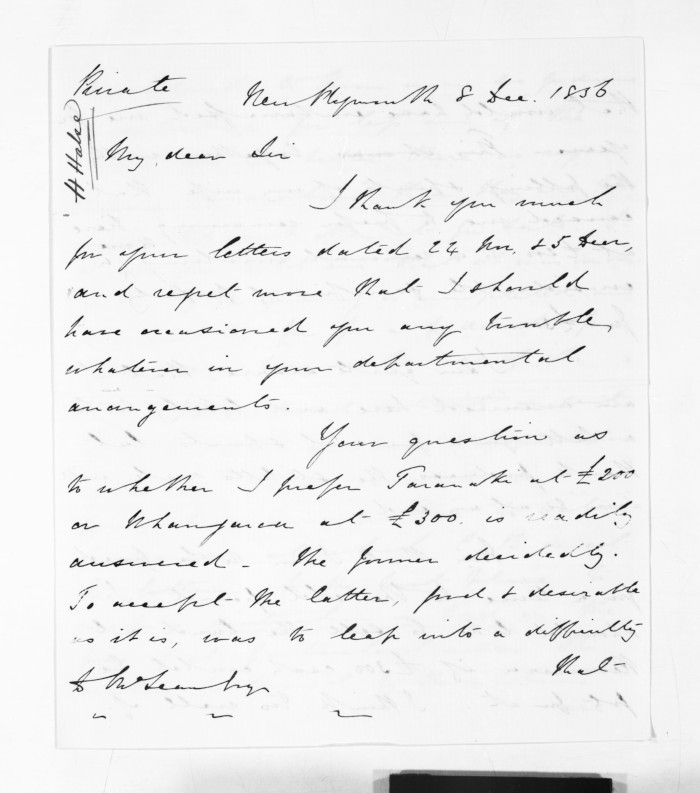 Private
H Halse
New Plymouth 8 Dec. 1856
My dear Sir
I thank you much
for your letters dated 24 Nov. & 5 Decr,
and regret more that I should
have occasioned you any trouble
whatever in your departmental
arrangements.
Your question as
to whether I prefer Taranaki at £200
or Whangarei at £300. is readily
answered - the former decidedly.
To accept the latter, good & desirable
as it is, was to leap into a difficulty
that
D McLean Esqr